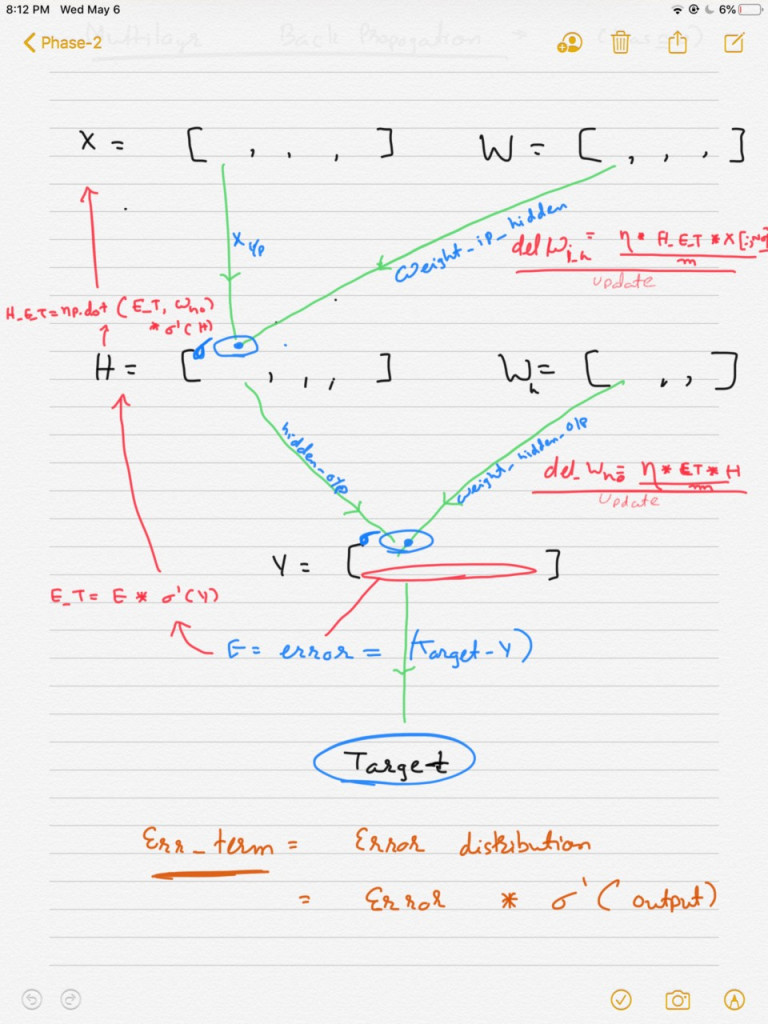 8:12 PM Wed May 6
6%
Phase-2
Multilayr Back Propogation
X = [ , , , ]
W = [ , , , ]
X i/p
Weight_ip_hidden
del W i_h = η * H_E_T * X[:,No]
m
update
H_E_T = np.dot (E_T, W ho)
* σ'(H)
σ
H = [ , , , ]
W h = [ , , ]
hidden_o/p
weight_hidden_o/p
del_W ho = η * ET * H
m
Update
σ
Y = [ ]
E_T = E * σ'(Y)
E = error = (Target - Y)
Target
Err_term = Error distribution
= Error * σ'(output)